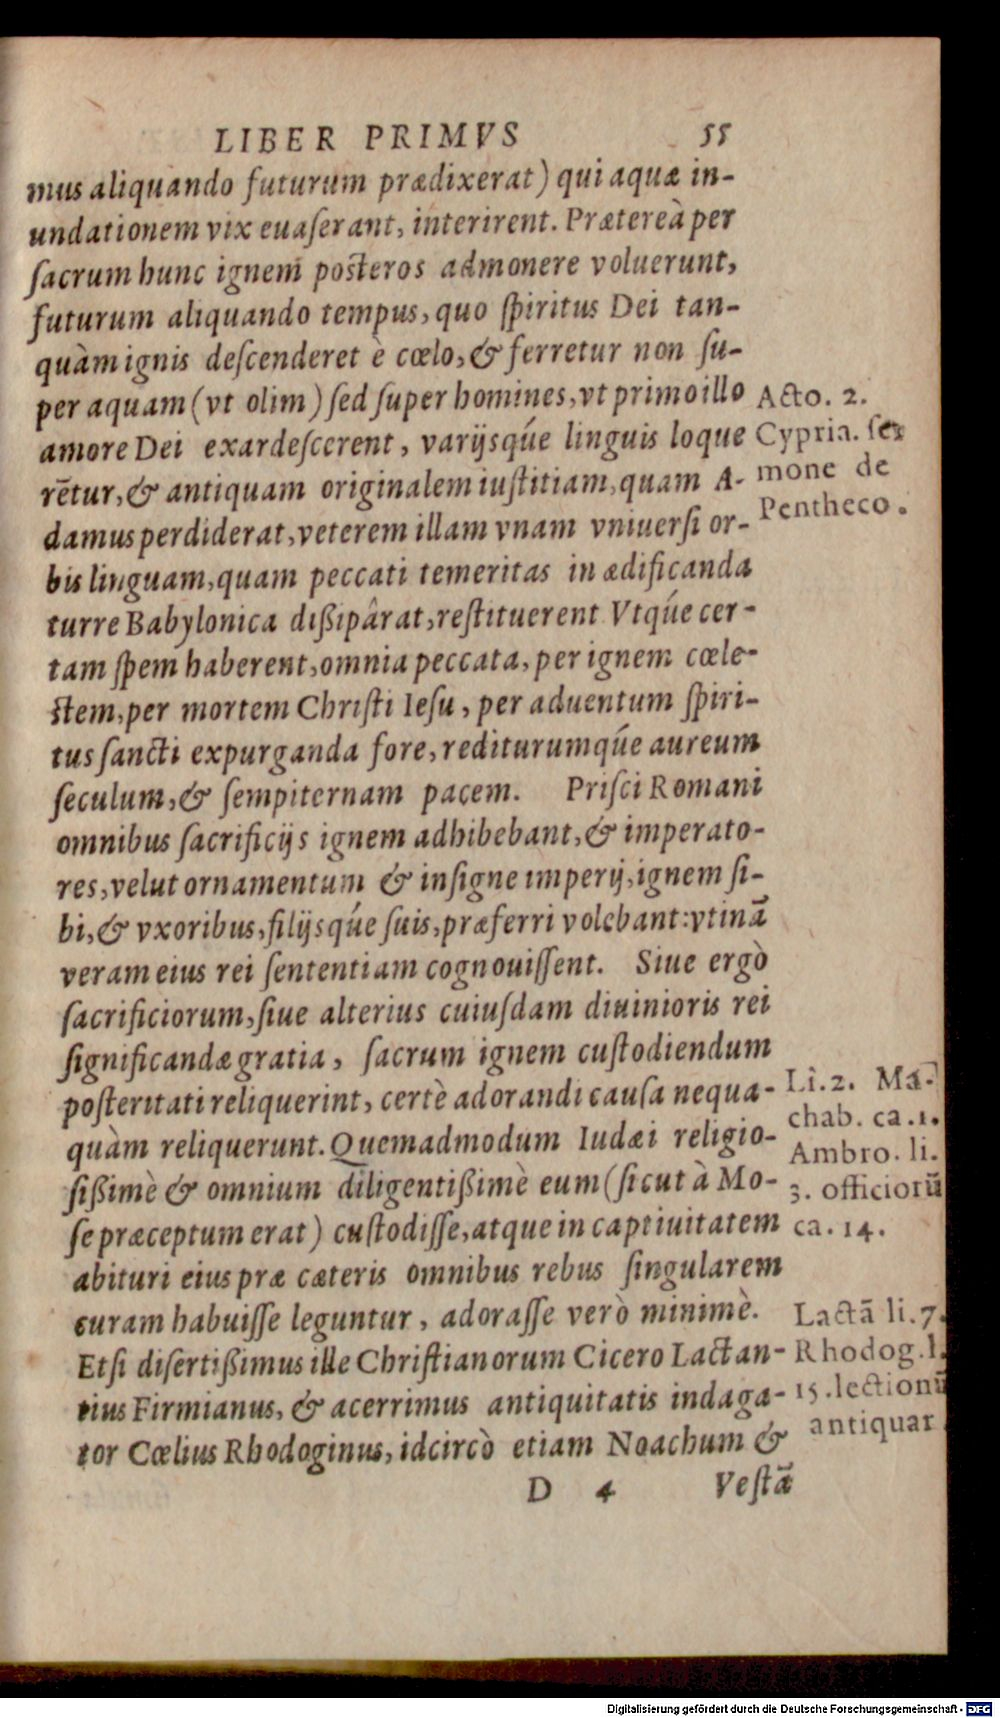 LIBER PRIMVS 55
mus aliquando futurum prædixerat) qui aquæ in-
undationem vix euaſerant, interirent. Prætereà per
ſacrum hunc ignem poſteros admonere voluerunt,
futurum aliquando tempus, quo ſpiritus Dei tan-
quàm ignis deſcenderet è cœlo, & ferretur non ſu-
per aquam (vt olim) ſed ſuper homines, vt primo illo
amore Dei exardeſcerent, varijsqúe linguis loque
rētur, & antiquam originalem iuſtitiam, quam A-
damus perdiderat, veterem illam vnam vniuerſi or-
bis linguam, quam peccati temeritas in ædificanda
turre Babylonica dißipârat, reſtituerent Vtqúe cer-
tam ſpem haberent, omnia peccata, per ignem cœle-
ſtem, per mortem Chriſti Ieſu, per aduentum ſpiri-
tus ſancti expurganda fore, rediturumqúe aureum
ſeculum, & ſempiternam pacem. Priſci Romani
omnibus ſacrificijs ignem adhibebant, & imperato-
res, velut ornamentum & inſigne imperij, ignem ſi-
bi, & vxoribus, filijsqúe ſuis, præferri volebant: vtinā
veram eius rei ſententiam cognouiſſent. Siue ergò
ſacrificiorum, ſiue alterius cuiuſdam diuinioris rei
ſignificandæ gratia, ſacrum ignem cuſtodiendum
poſteritati reliquerint, certè adorandi cauſa nequa-
quàm reliquerunt. Quemadmodum Iudæi religio-
ſißimè & omnium diligentißimè eum (ſicut à Mo-
ſe præceptum erat) cuſtodiſſe, atque in captiuitatem
abituri eius præ cæteris omnibus rebus ſingularem
curam habuiſſe leguntur, adoraſſe verò minimè.
Etſi diſertißimus ille Chriſtianorum Cicero Lactan-
tius Firmianus, & acerrimus antiquitatis indaga-
tor Cœlius Rhodoginus, idcircò etiam Noachum &
D 4 Veſtā
Acto. 2.
Cypria. ſer
mone de
Pentheco.
Li. 2. Ma-
chab. ca. 1.
Ambro. li.
3. officiorū
ca. 14.
Lactā li. 7.
Rhodog. l.
15. lectionū
antiquar.
Digitalisierung gefördert durch die Deutsche Forschungsgemeinschaft - DFG